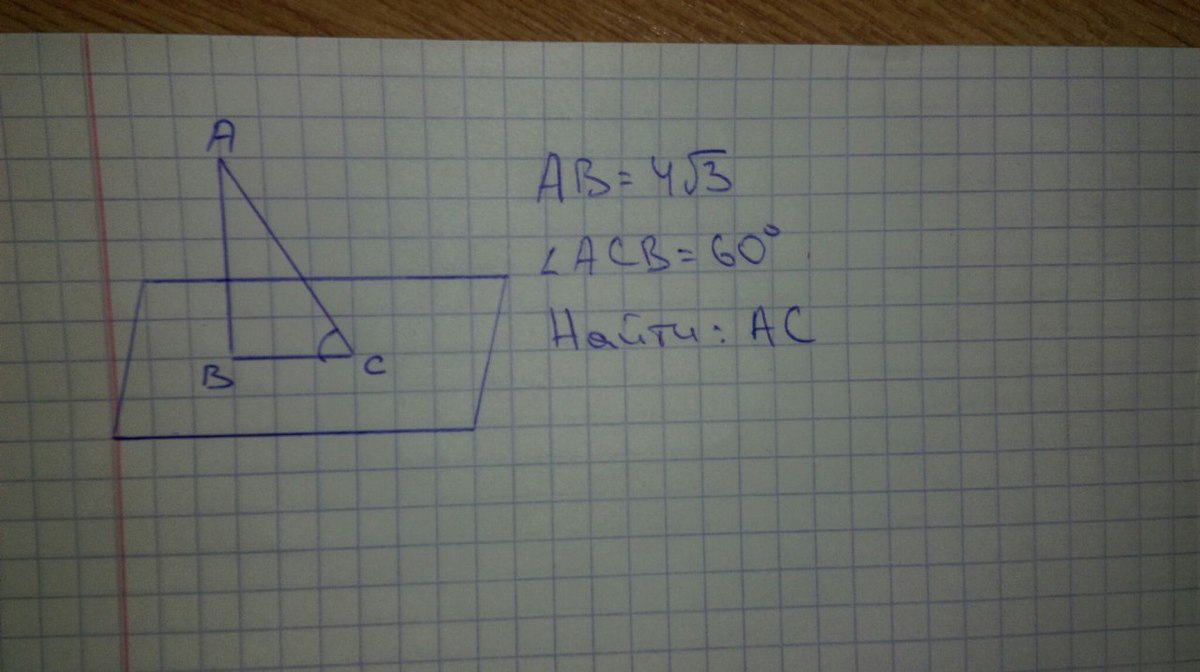 A
B
C
AB = 4√3
∠ACB = 60°
Найти: AC